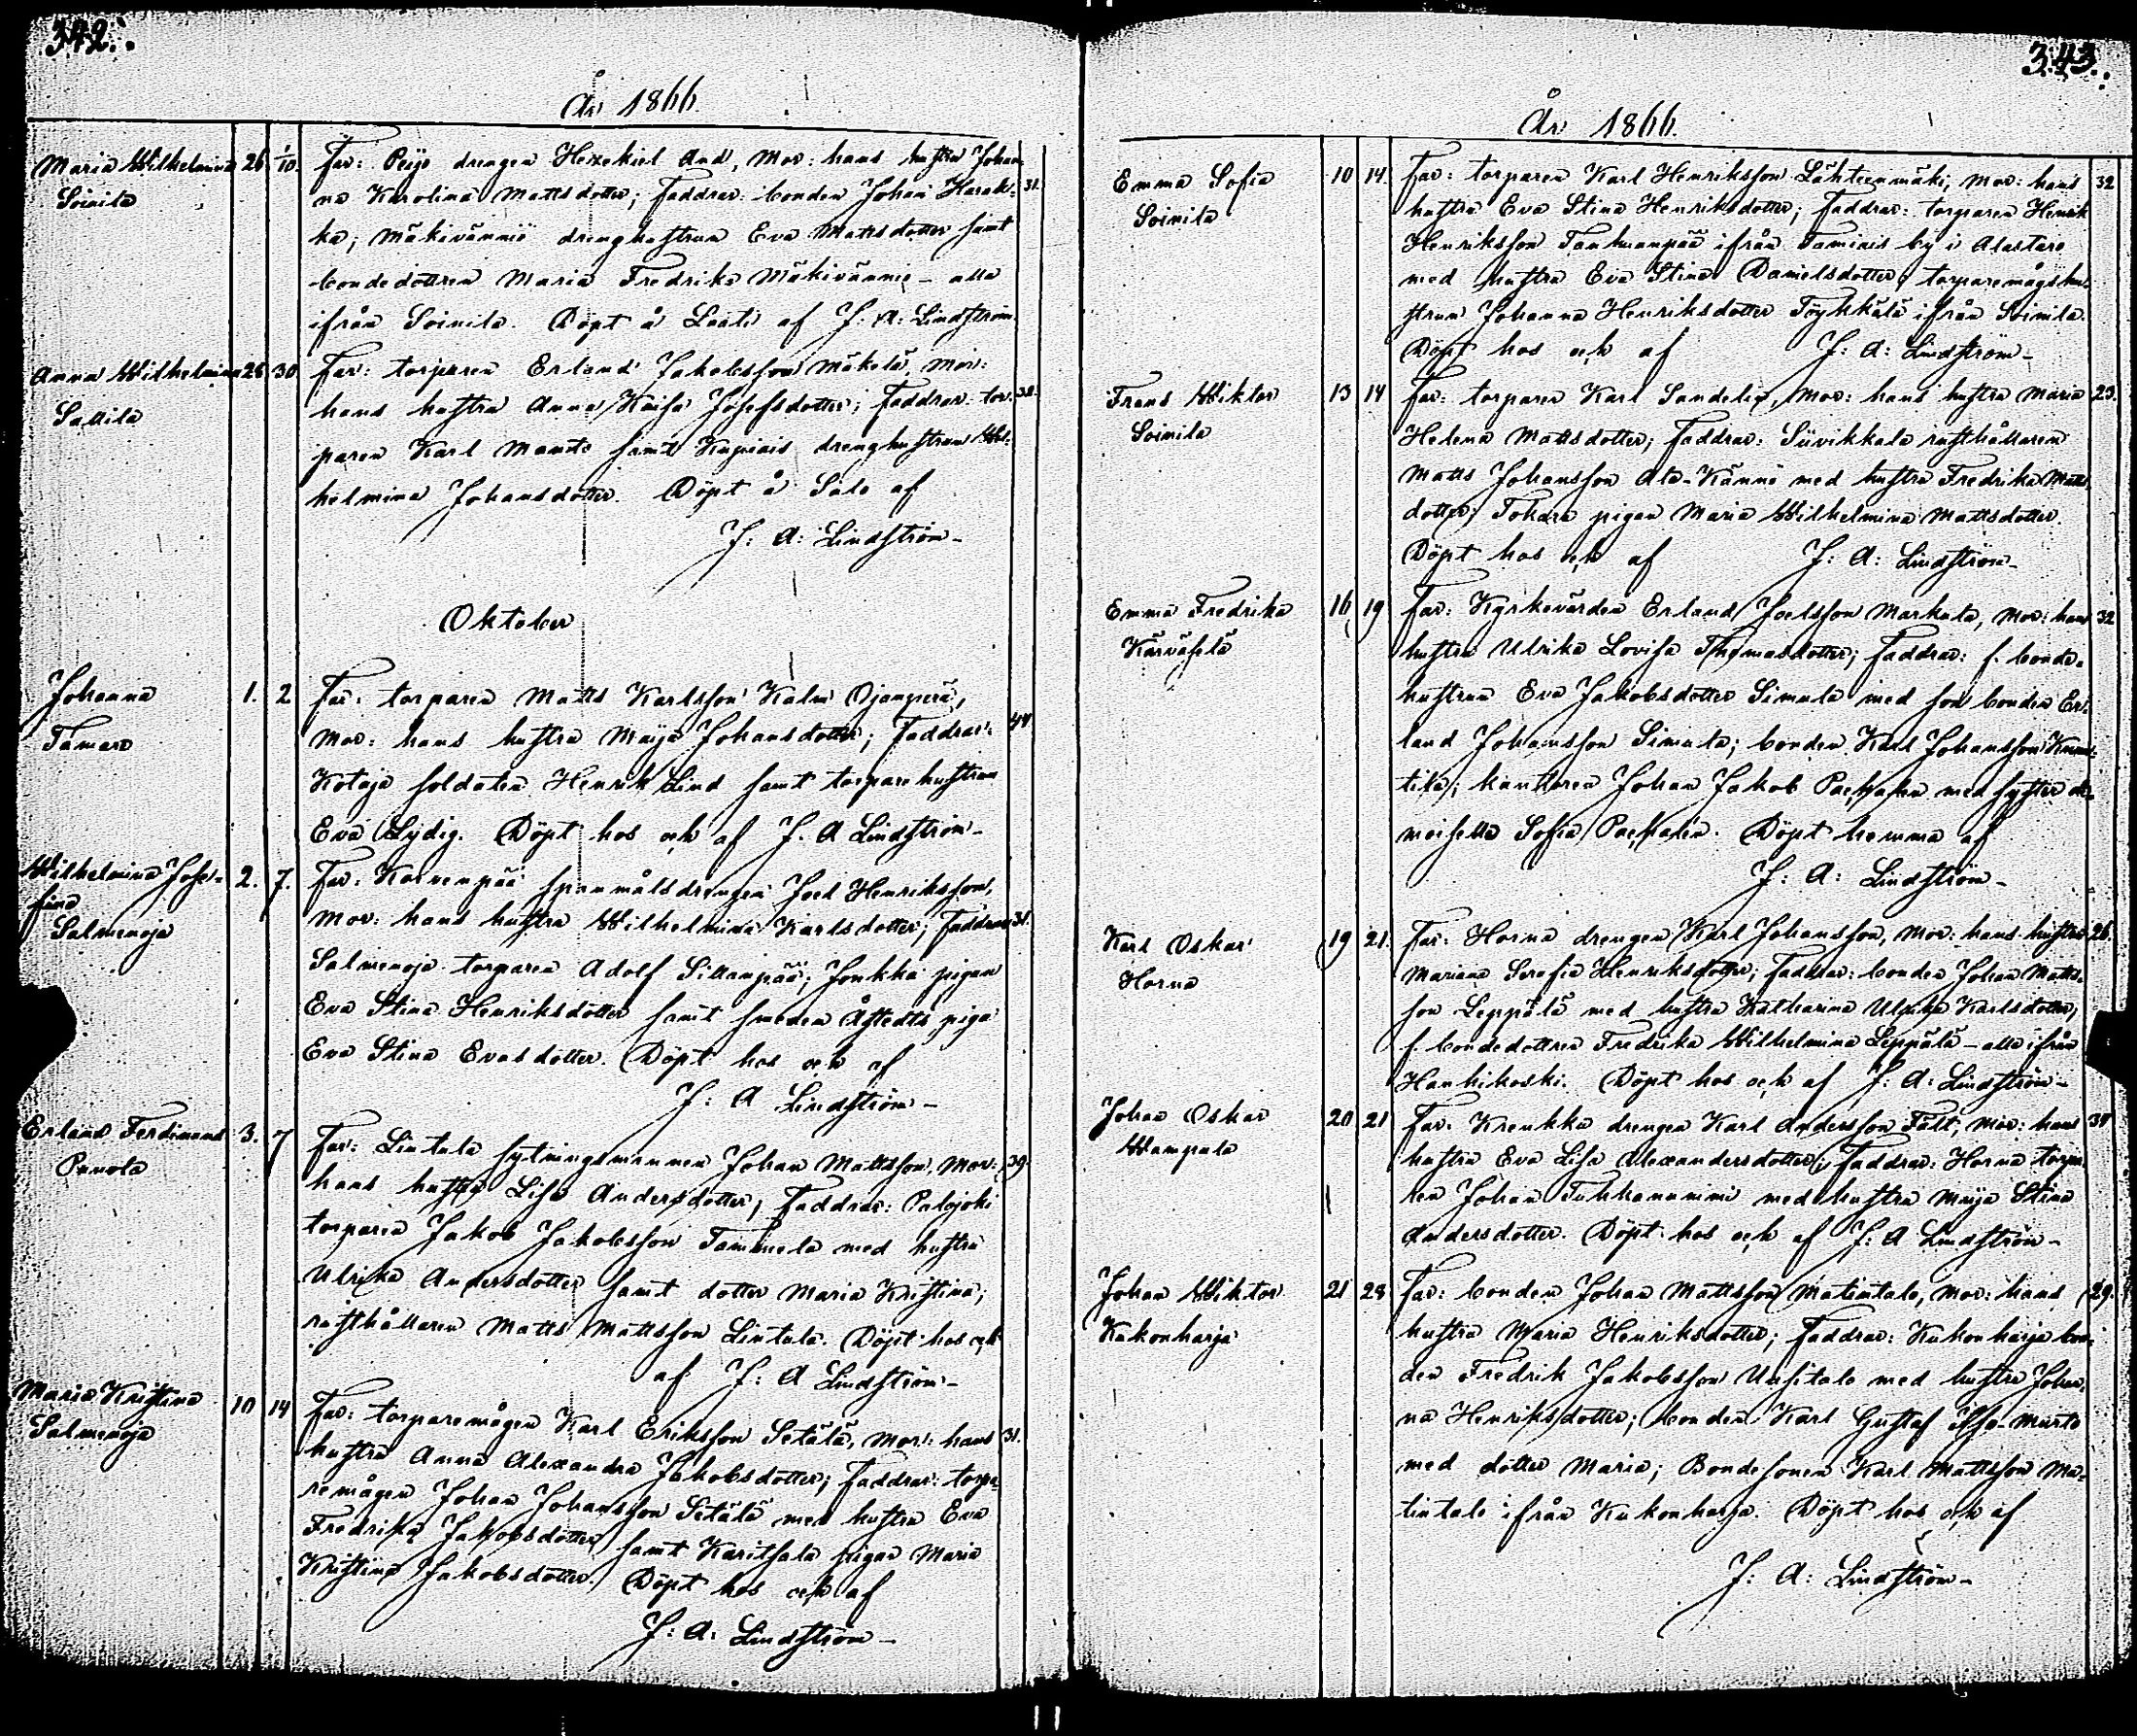 342.
År 1866.
Maria Wilhelmina 26 1/10. Far: Peijo drengen Hezekiel And, Mor: hans hustru Johan-
Soinila na Karolina Mattsdotter; Faddrar: bonden Johan Harak- 31.
ka; Mäkivänniö drenghustrun Eva Mattsdotter samt
bondedottren Maria Fredrika Mäkivännio – alla
ifrån Soinila. Döpt å Laati af J: A: Lindström.
Anna Wilhelmina 28 30 Far: torparen Erland Jakobsson Mäkelä, Mor:
Sallila hans hustru Anna Kaisa Josefsdotter; Faddrar: tor- 32.
paren Karl Manto samt Kupiais drenghustrun Wil-
helmina Johansdotter. Döpt å Salo af
J: A: Lindström –
Oktober
Johanna 1. 2 Far: torparen Matts Karlsson Kalm Ojanperä,
Tamare Mor: hans hustru Maija Johansdotter; Faddrar: 44
Kotoja soldaten Henrik Lind samt torparehustrun
Eva Lydig. Döpt hos och af J. A Lindström –
Wilhelmina Jose- 2. 7. Far: Korvenpää spanmålsdrengen Joel Henriksson,
fina Mor: hans hustru Wilhelmina Karlsdotter; Faddrar 31.
Salmenoja
Salmenoja torparen Adolf Sillanpää; Jonkka pigan
Eva Stina Henriksdotter samt smeden Åstedts piga
Eva Stina Evasdotter. Döpt hos och af
J: A Lindström –
Erland Ferdinand 3. 7 Far: Lintula sytningsmannen Johan Mattsson, Mor: 39.
Punola hans hustru Lisa Andersdotter; Faddrar: Palojoki
torparen Jakob Jakobsson Tammela med hustru
Ulrika Andersdotter samt dotter Maria Kristina;
rusthållaren Matts Mattsson Lintula. Döpt hos och
af J: A Lindström –
Maria Kristina 10 14 Far: torparemågen Karl Eriksson Setälä, Mor: hans 31.
Salmenoja hustru Anna Alexandra Jakobsdotter; Faddrar: torpa-
remågen Johan Johansson Setälä med hustru Eva
Fredrika Jakobsdotter samt Karitsala pigan Maria
Kristina Jakobsdotter. Döpt hos och af
J: A: Lindström –
343.
År 1866.
Emma Sofia 10 14. Far: torparen Karl Henriksson Lähteenmäki, Mor: hans 32
Soinila hustru Eva Stina Henriksdotter; Faddrar: torparen Henrik
Henriksson Tanhuanpää ifrån Tamiais by i Alastaro
med hustru Eva Stina Danielsdotter; torparemågshu-
strun Johanna Henriksdotter Töykkälä ifrån Soinila.
Döpt hos och af J: A: Lindström –
Frans Wiktor 13 14 Far: torparen Karl Sandelin, Mor: hans hustru Maria 23.
Soinila Helena Mattsdotter; Faddrar: Süvikkala rusthållaren
Matts Johansson Ala-Kännö med hustru Fredrika Matts-
dotter; Tokara pigan Maria Wilhelmina Mattsdotter.
Döpt hos och af J: A: Lindström –
Emma Fredrika 16 19 Far: Kyrkovärden Erland Joelsson Markula, Mor: hans 32
Kärväsalä hustru Ulrika Lovisa Thomasdotter; Faddrar: f. bonde-
hustrun Eva Jakobsdotter Simula med son bonden Er-
land Johansson Simula; bonden Karl Johansson
tila; kantorn Johan Jakob Pachalen med syster de-
moiselle Sofia Pachalén. Döpt hemma af
J: A: Lindström –
Karl Oskar 19 21. Far: Horna drengen Karl Johansson, Mor: hans hustru 26.
Horna Mariana Serafia Henriksdotter; Faddrar: bonden Johan Matts-
son Leppälä med hustru Katharina Ulrika Karlsdotter;
f. bondedottren Fredrika Wilhelmina Leppälä – alla ifrån
Hanhikoski. Döpt hos och af J: A: Lindström –
Johan Oskar 20 21 Far: Krenkka drengen Karl Andersson Fält, Mor: hans 34
Wampula hustru Eva Lisa Alexandersdotter; Faddrar: Horna torpa-
ren Johan Tuhkanummi med hustru Maija Stina
Andersdotter. Döpt hos och af J: A Lindström –
Johan Wiktor 21 28 Far: bonden Johan Mattsson Matintalo, Mor: hans 29.
Kukonharja hustru Maria Henriksdotter; Faddrar: Kukonharja bon-
den Fredrik Jakobsson Uusitalo med hustru Johan-
na Henriksdotter; bonden Karl Gustaf Iso-Murto
med dotter Maria; Bondesonen Karl Mattsson Ma-
tintalo ifrån Kukonharja. Döpt hos och af
J: A: Lindström –